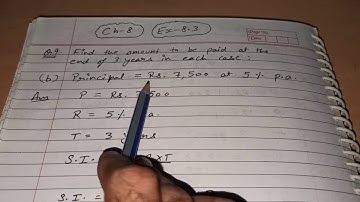 Ch-8 Ex-8.3
Q.4 Find the amount to be paid at the
end of 3 years in each case:
(b) Principal = Rs. 7,500 at 5% p.a.
Ans P = Rs. 7,500
R = 5%
T = 3
S.I.
S.I. =